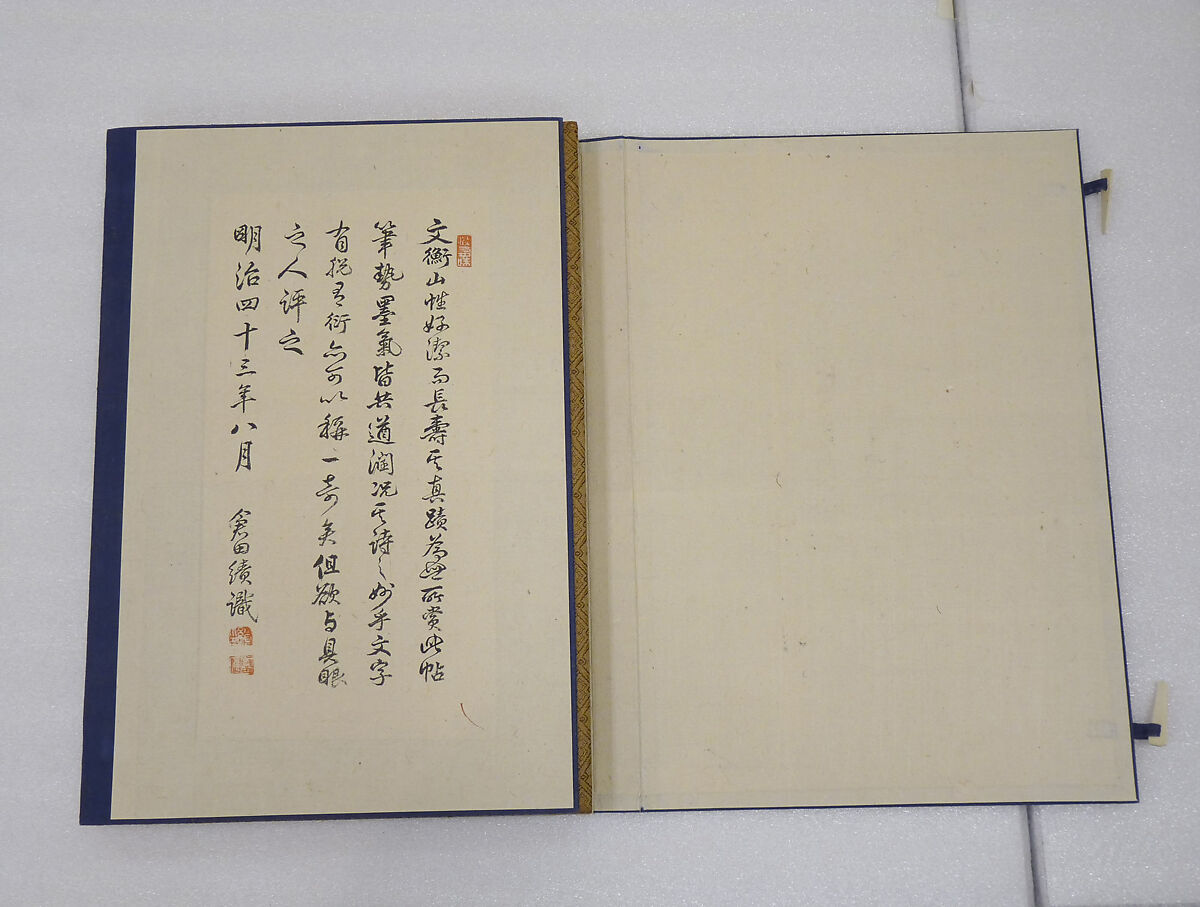 文衡山性好潔而長壽其真蹟為世所賞此帖
筆勢墨氣皆共遒潤況其詩之妙乎文字
有脫有衍亦可以稱一奇矣但欲与具眼
之人評之
明治四十三年八月 倉田績識